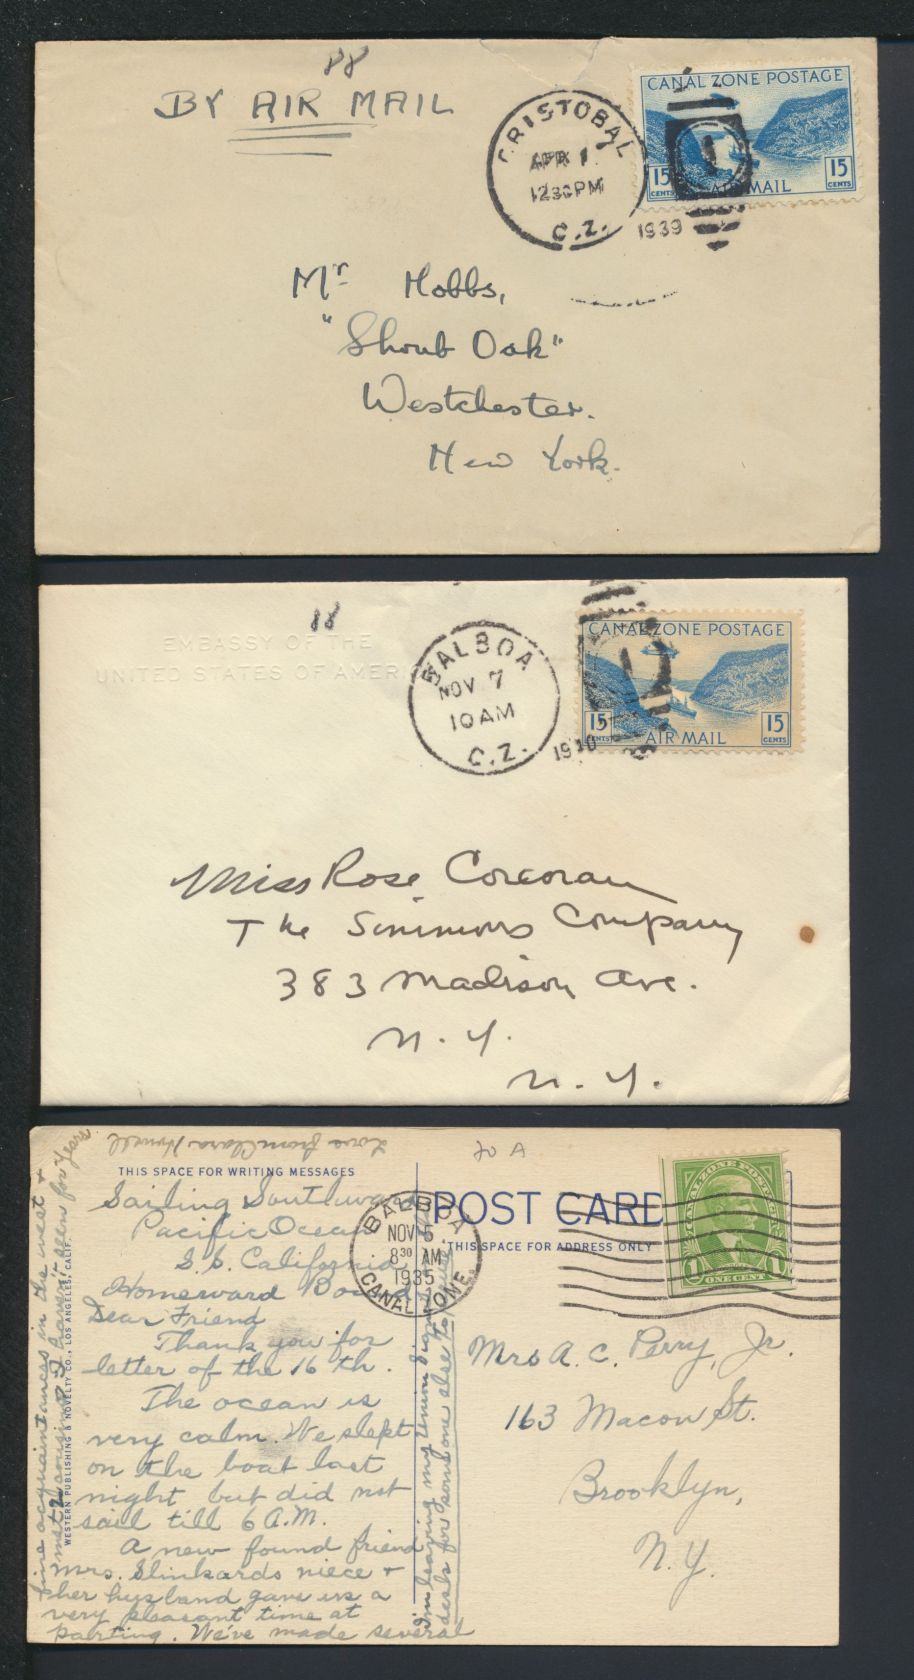 88
BY AIR MAIL
CRISTOBAL
APR 1
12 30 PM
C.Z.
1939
CANAL ZONE POSTAGE
15 CENTS
15 CENTS
AIR MAIL
Mr Hobbs,
"Shrub Oak"
Westchester.
New York.
EMBASSY OF THE
UNITED STATES OF AMERI
BALBOA
NOV 7
10 AM
C.Z.
CANAL ZONE POSTAGE
15 CENTS
AIR MAIL
15 CENTS
Miss Rose Corcoran
The Simmons Company
383 Madison Ave.
N. Y.
N. Y.
Love from Clara Howell
THIS SPACE FOR WRITING MESSAGES
Sailing Southward
Pacific Ocean
S.S. California
Homeward Bound
Dear Friend
Thank you for
letter of the 16 th.
The ocean is
very calm. We slept
on the boat last
night but did not
sail till 6 A.M.
A new found friend
Mrs. Slinkards niece +
her husband gave us a
very pleasant time at
parting. We've made several
fine acquaintances in the west +
met 2 cousins I haven't seen for years
I'm leaving my Union Signature
desk for someone else to
WESTERN PUBLISHING & NOVELTY CO., LOS ANGELES, CALIF.
BALBOA
NOV 5
8 30 AM
1935
CANAL ZONE
70 A
POST CARD
THIS SPACE FOR ADDRESS ONLY
CANAL ZONE POSTAGE
1 1
ONE CENT
Mrs A. C. Perry, Jr.
163 Macon St.
Brooklyn,
N.Y.